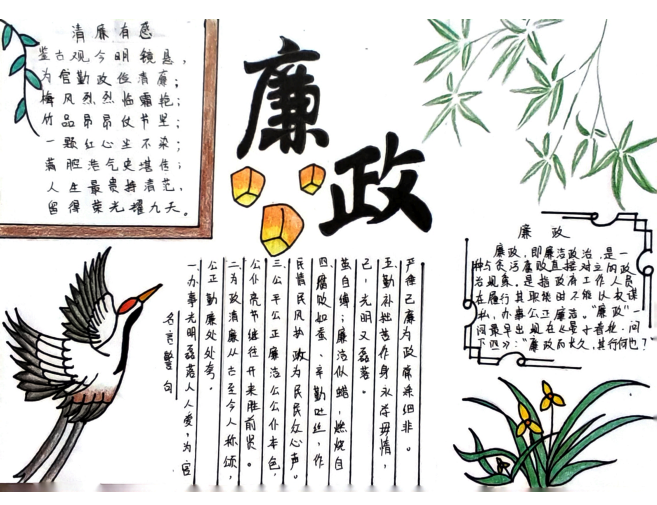 清廉有感
鉴古观今明镜悬，
为官勤政俭清廉；
梅风烈烈临霜艳；
竹品昂昂仗节坚；
一颗红心尘不染；
满胆浩气史堪传；
人生最贵持清范，
留得荣光耀九天。
廉政
廉政
廉政，即廉洁政治，是一
种与贪污腐败直接对立的政
治现象，是指政府工作人员
在履行其职務时不能以权谋
私，办事公正廉洁。"廉政"一
词最早出现在
下四》："廉政而长久，其行何也？"
严律己廉为政保亲细非。
互勤补拙苦作身永葆毋情，
己；光明又磊落。
茧自缚；廉洁似蜡，燃烧自
四腐败如蚕、辛勤吐丝，作
民情民风抄政为民民红心声。
三公平公正廉洁公公仆本色，
公仆亮节继往开来胜前贤。
二为政清廉从古至今人称颂，
公正勤廉处处夸。
一办事光明磊落人人爱，为官
名言警句